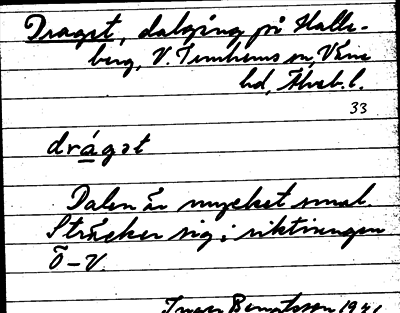 Draget, dalgång på Halle-
berg, V. Tunhems sn,Väne
hd, Älvsb. l.
33
drágət
Dalen är mycket smal.
Sträcker sig i riktningen
Ö-V.
Bengtsson 1941